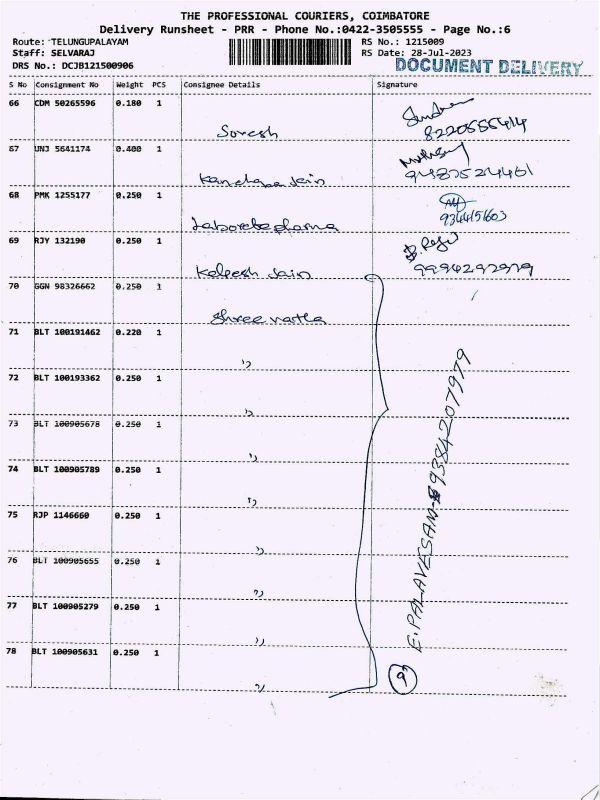 THE PROFESSIONAL COURIERS, COIMBATORE
Delivery Runsheet - PRR - Phone No.:0422-3505555 - Page No.:6
Route: TELUNGUPALAYAM RS No.: 1215009
Staff: SELVARAJ RS Date: 28-Jul-2023
DRS No.: DCJB121500906 DOCUMENT DELIVERY
S No Consignment No Weight PCS Consignee Details Signature
66 CDM 50265596 0.180 1
Soresh 8220555414
67 UNJ 5641174 0.400 1
Jain 9487524461
68 PMK 1255177 0.250 1
9344151603
69 RJY 132190 0.250 1
Kaleesh Jain 9994292979
70 GGN 98326662 0.250 1
Shree
71 BLT 100191462 0.220 1
"
72 BLT 100193362 0.250 1
"
73 BLT 100905678 0.250 1
"
74 BLT 100905789 0.250 1
"
75 RJP 1146660 0.250 1
"
76 BLT 100905655 0.250 1
"
77 BLT 100905279 0.250 1
"
78 BLT 100905631 0.250 1
"
E. PALAVESAM 9384207979
9